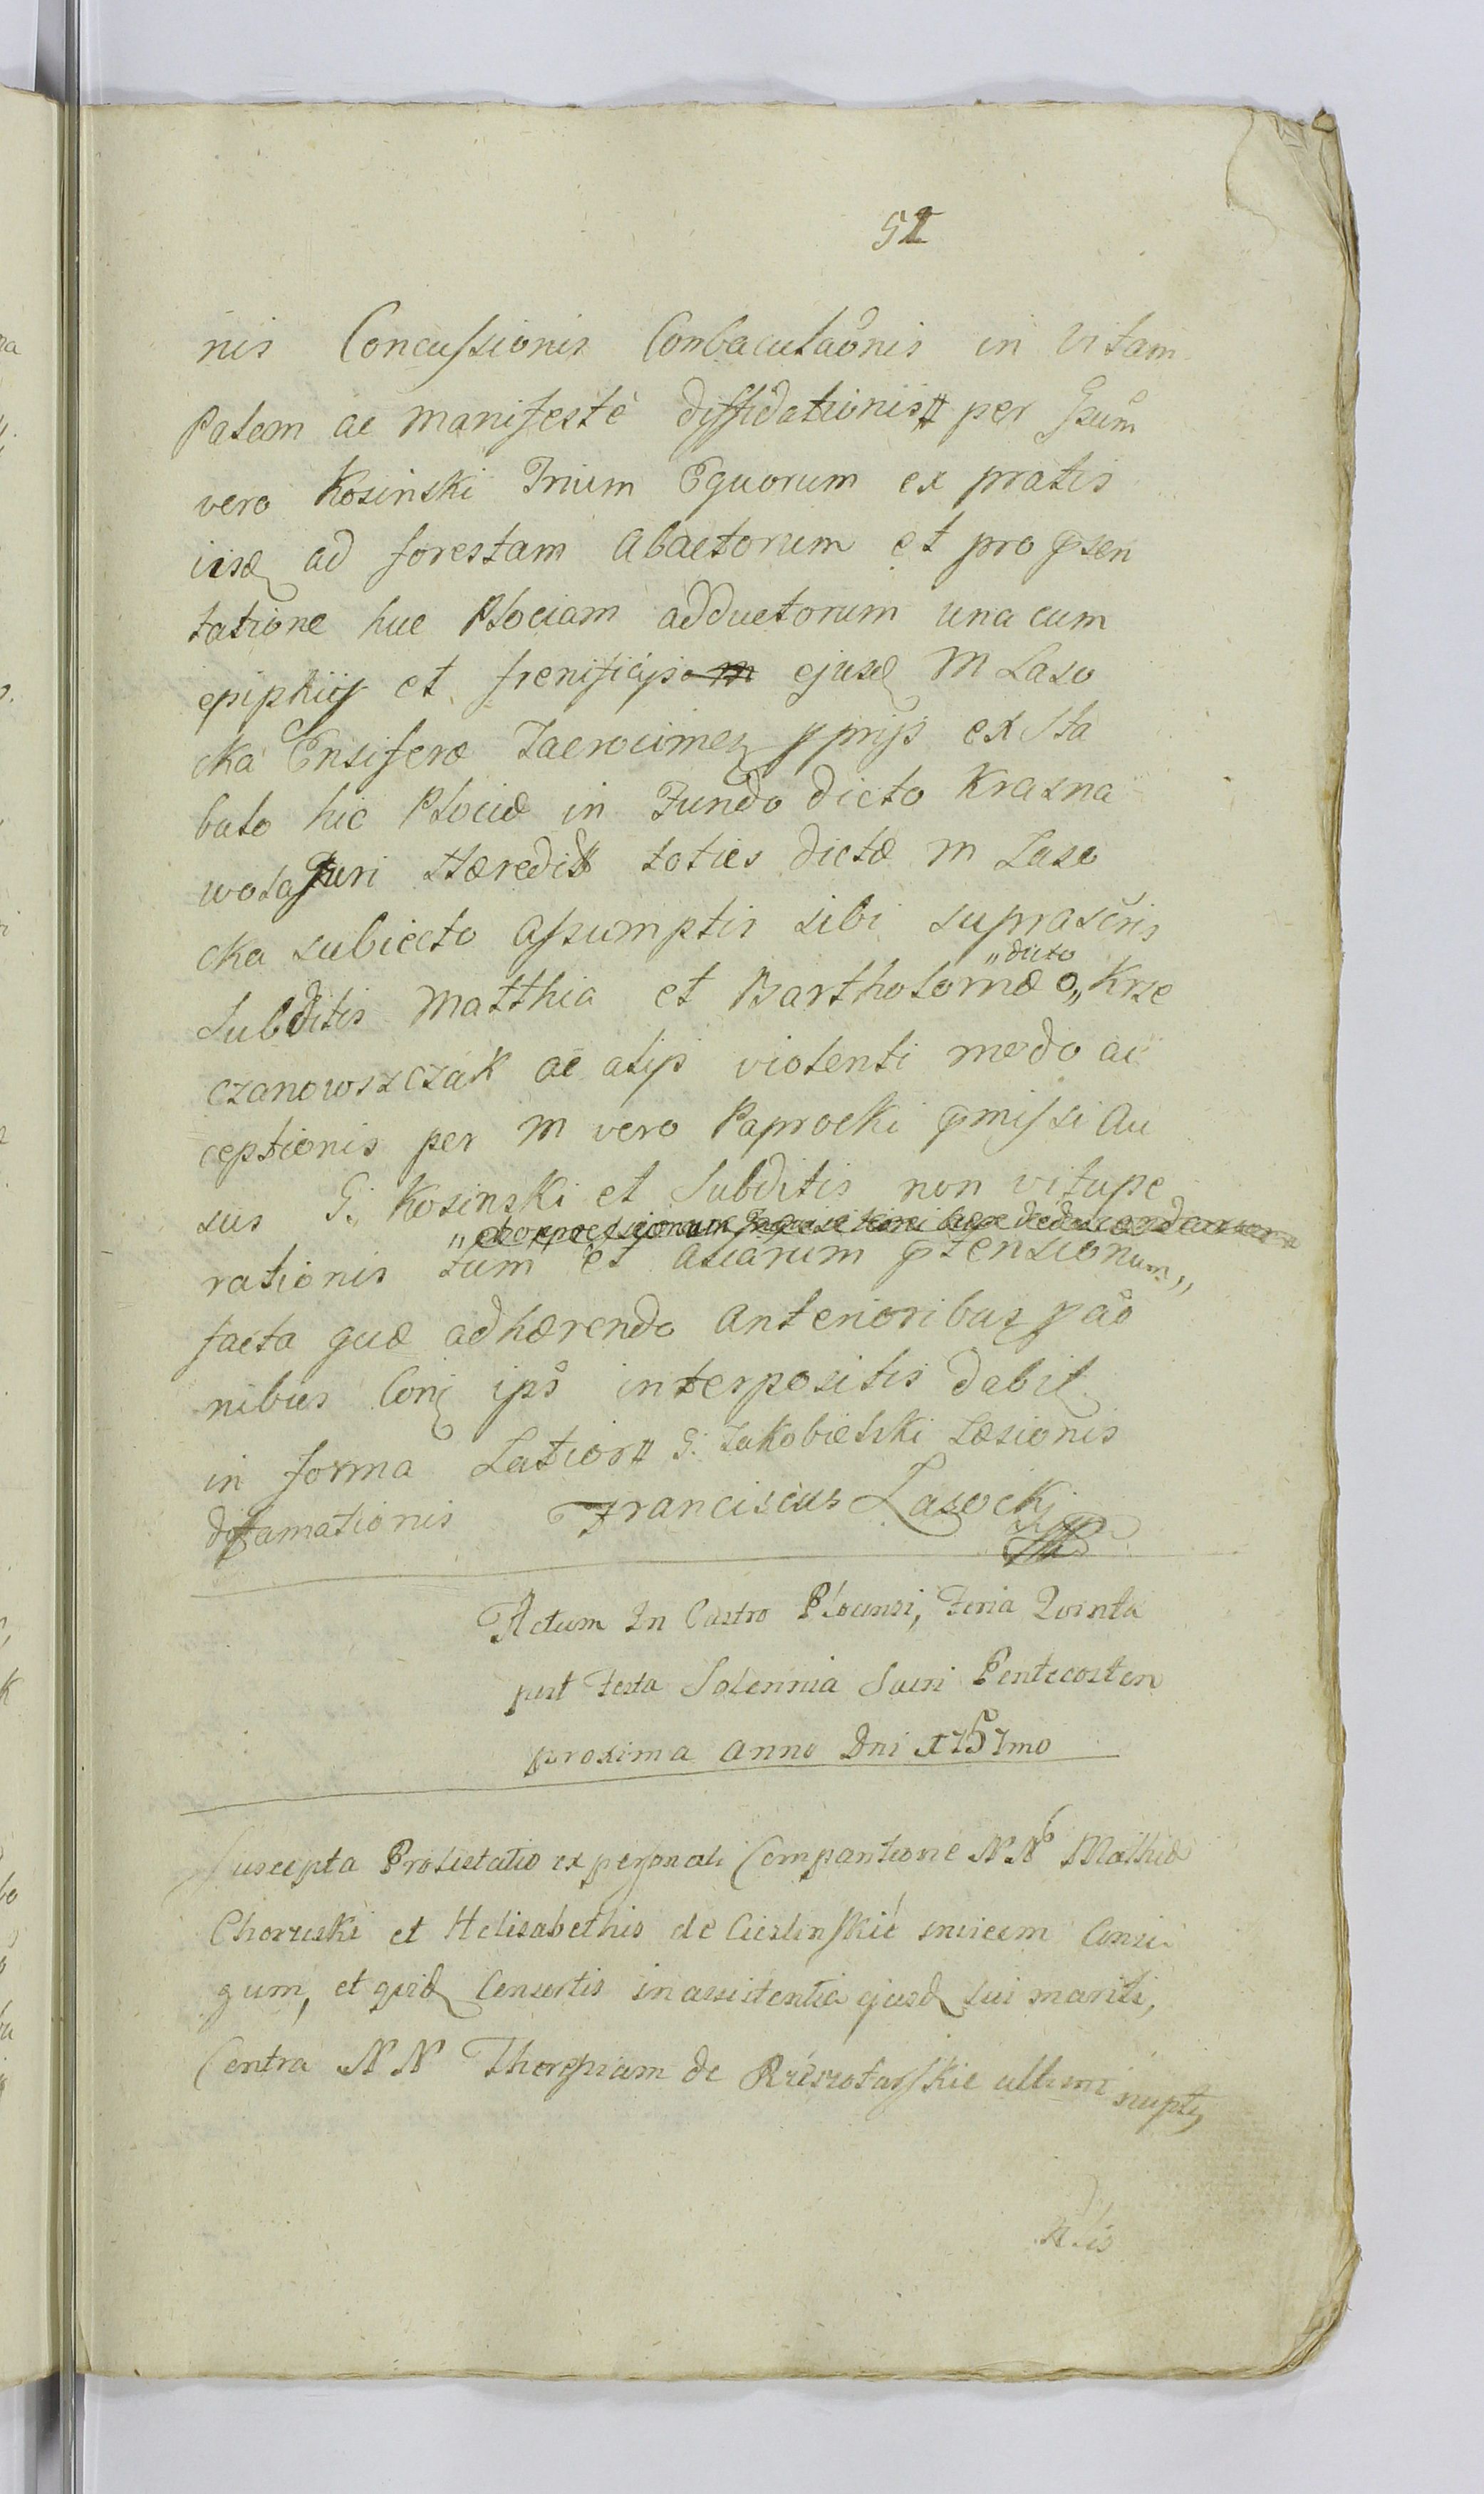 51
nis Concussionis Combaculaōnis in Vitam
Palem ac manifestè diffidationis per Gsūm
vero Kosinski Trium Equorum ex pratis
iisd ad forestam abactorum et pro psen
tatione huc Plociam adductorum una cum
epiphiis et frenificijs ejusd M Laso
cka Ensiferæ Zacrocimen pprijs ex sta
bulo hic Plociæ in Fundo dicto Krasna
wola Juri Hæredit toties dictæ M Laso
cka subiecto assumptis sibi suprascris
„dicto
subditis Matthia et Bartholomæo „ Krze
czanowszczak ac alijs violenti modo ac
ceptionis per M vero Paprocki pmissi au
sus G. Kosinski et subditis non vitupe
rationis tum et aliarum ptensionum „
facta quæ adhærendo anterioribus pāo
nibus Conj ips interpositis dabit
in forma Latior G. Jakobielski Læsionis
difamationis Franciscus Lasocki
Actum In Castro Plocensi, Feria Quinta
post Festa Solennia Sacri Pentecosten
proxima Anno Dni 1757mo
Suscepta Protestatio ex personali Comparitione NN Mathiæ
Choruski et Helisabethis de Cieslinskie invicem Conju
gum, et quid Consortis in assistentia ejusd sui mariti,
Contra NN Thorosiam de ultimi nuptz
Alis